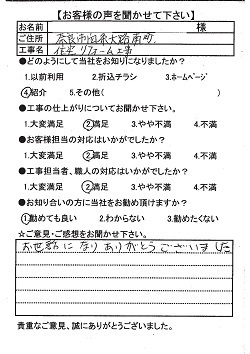 【お客様の声を聞かせて下さい】
お名前 様
ご住所 奈良市南京大路南町
工事名 住宅リフォーム工事
●どのようにして当社をお知りになりましたか？
1.以前利用 2.折込チラシ 3.ホームページ
④紹介 5.その他( )
●工事の仕上がりについてお聞かせ下さい。
1.大変満足 ②満足 3.やや不満 4.不満
●お客様担当の対応はいかがでしたか？
1.大変満足 ②満足 3.やや不満 4.不満
●工事担当者、職人の対応はいかがでしたか？
1.大変満足 ②満足 3.やや不満 4.不満
●お知り合いの方に当社をお勧め頂けますか？
①勧めても良い 2.わからない 3.勧めたくない
☆ご意見・ご感想をお聞かせ下さい
お世話になりありがとうございました
貴重なご意見、誠にありがとうございました。